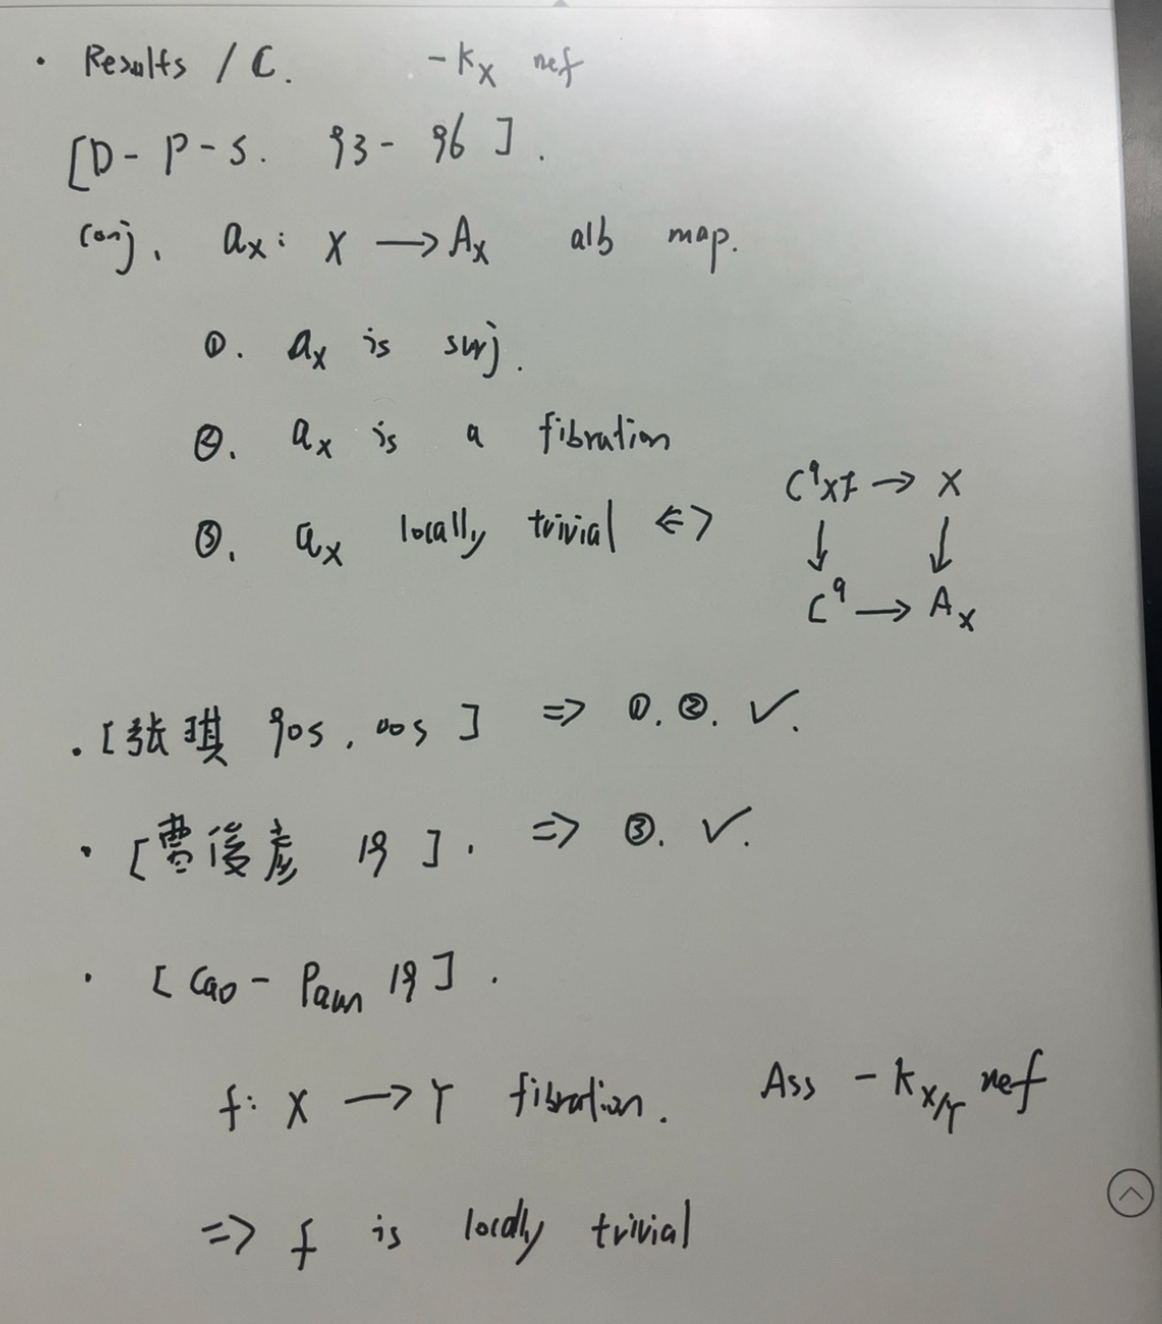 · Results / C. -K_X nef
[D-P-S. 93-96].
Conj. a_X: X → A_X alb map.
①. a_X is surj.
②. a_X is a fibration
③. a_X locally trivial <=>
C^q×F → X
↓ ↓
C^q → A_X
· [张琪 90s, 00s] => ①. ②. ✓.
· [曹俊彦 19]. => ③. ✓.
· [Cao-Paun 19].
f: X → Y fibration. Ass -K_{X/Y} nef
=> f is locally trivial